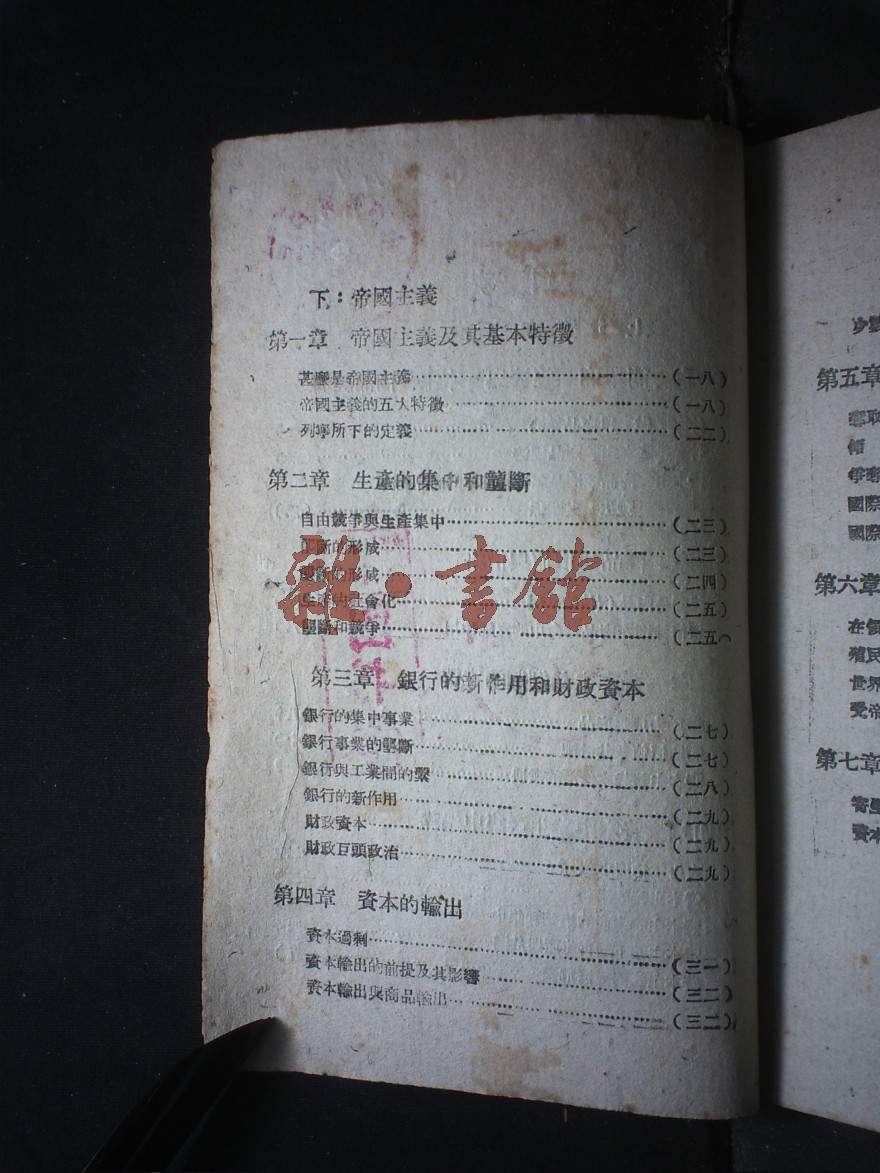 下：帝國主義
第一章 帝國主義及其基本特徵
甚麽是帝國主義……（一八）
帝國主義的五大特徵……（一八）
列寧所下的定義……（二二）
第二章 生產的集中和壟斷
自由競爭與生產集中……（二三）
斷的形成……（二三）
斷的形成……（二四）
生產的社會化……（二五）
壟斷和競爭……（二五
第三章 銀行的新作用和財政資本
銀行的集中事業……（二七）
銀行事業的壟斷……（二七）
銀行與工業間的繫……（二八）
銀行的新作用……（二九）
財政資本……（二九）
財政巨頭政治……（二九）
第四章 資本的輸出
資本過剩……（三一）
資本輸出的前提及其影響……（三二）
資本輸出與商品輸出……（三二）
雜·書館
第五章
爭奪
國際
國際
第六章
在
殖民
世界
受帝
第七章
資本